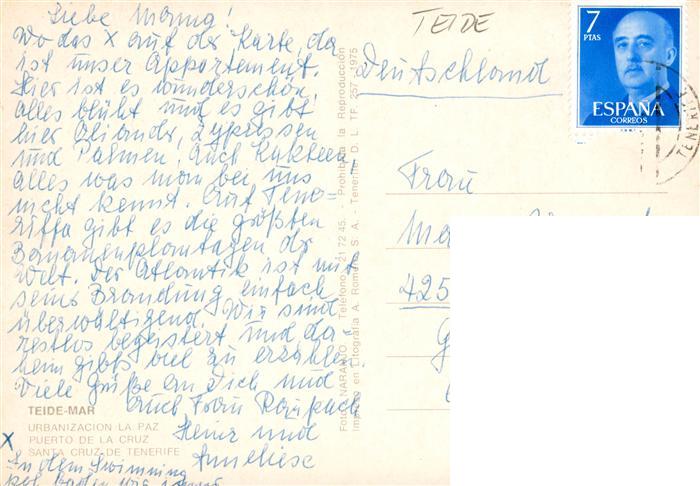 Liebe Mama!
Wo das X auf der Karte, da
ist unser Appartement.
Hier ist es wunderschön,
alles blüht und es gibt
hier Oliander, Zypressen
und Palmen. Auch Kakteen
alles was man bei uns
nicht kennt. Auf Tene-
riffa gibt es die größten
Bananenplantagen der
Welt. Der Atlantik ist mit
seine Brandung einfach
überwältigend. Wir sind
restlos begeistert und da-
heim gibts viel zu erzählen.
Viele Grüße an Dich und
auch Frau
Heinz und
Anneliese
X
In dem Swimming
TEIDE-MAR
URBANIZACION LA PAZ
PUERTO DE LA CRUZ
SANTA CRUZ DE TENERIFE
Foto: NARANJO. - Telefono 21 72 45. - Prohibida la Reproducción
Impreso en Litografía A. Romero S. A. - Tenerife D. L. TF. 257 - 1975
TEIDE
Deutschland
7
PTAS
ESPAÑA
CORREOS
Frau
425